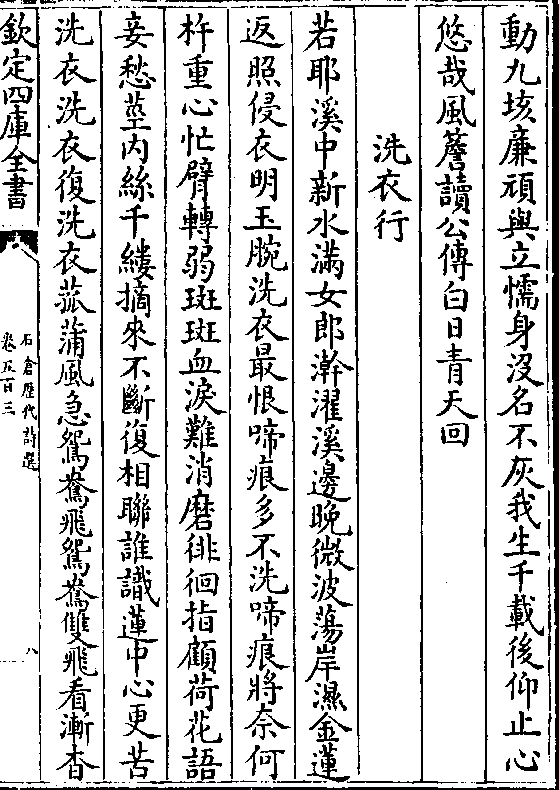 動九垓廉頑與立懦身沒名不灰我生千載後仰止心
悠哉風簷讀公傳白日青天回
洗衣行
若耶溪中新水滿女郎澣濯溪邊晚微波蕩岸濕金蓮
返照侵衣明玉腕洗衣最恨啼痕多不洗啼痕將奈何
杵重心忙臂轉弱斑斑血淚難消磨徘徊指顧荷花語
妾愁莖內絲千縷摘來不斷復相聯誰識蓮中心更苦
洗衣洗衣復洗衣菰蒲風急鴛鴦飛鴛鴦雙飛看漸杳
欽定四庫全書
石倉歷代詩選
卷五百三
八